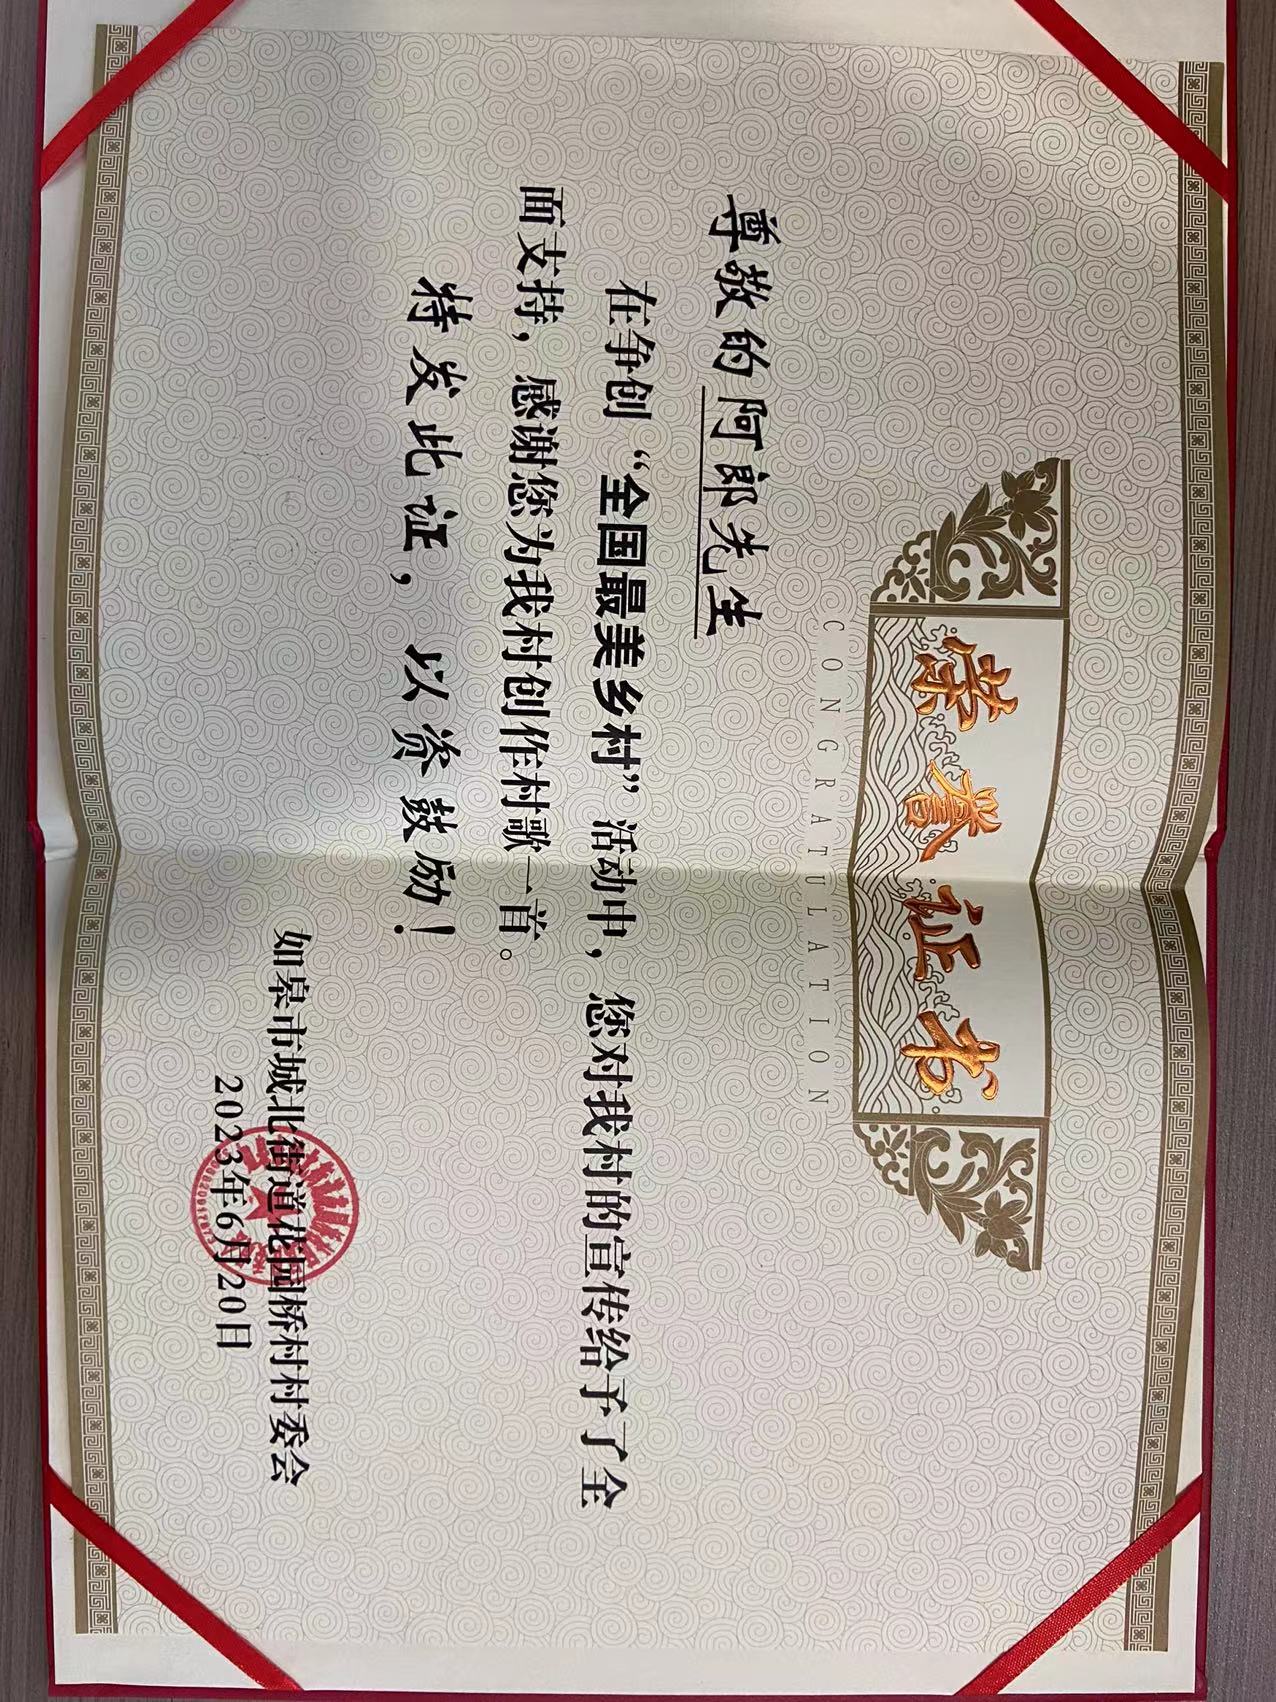 荣誉证书
CONGRATULATION
尊敬的阿郎先生
在争创“全国最美乡村”活动中，您对我村的宣传给予了全
面支持，感谢您为我村创作村歌一首。
特发此证，以资鼓励！
如皋市城北街道花园桥村村委会
2023年6月20日